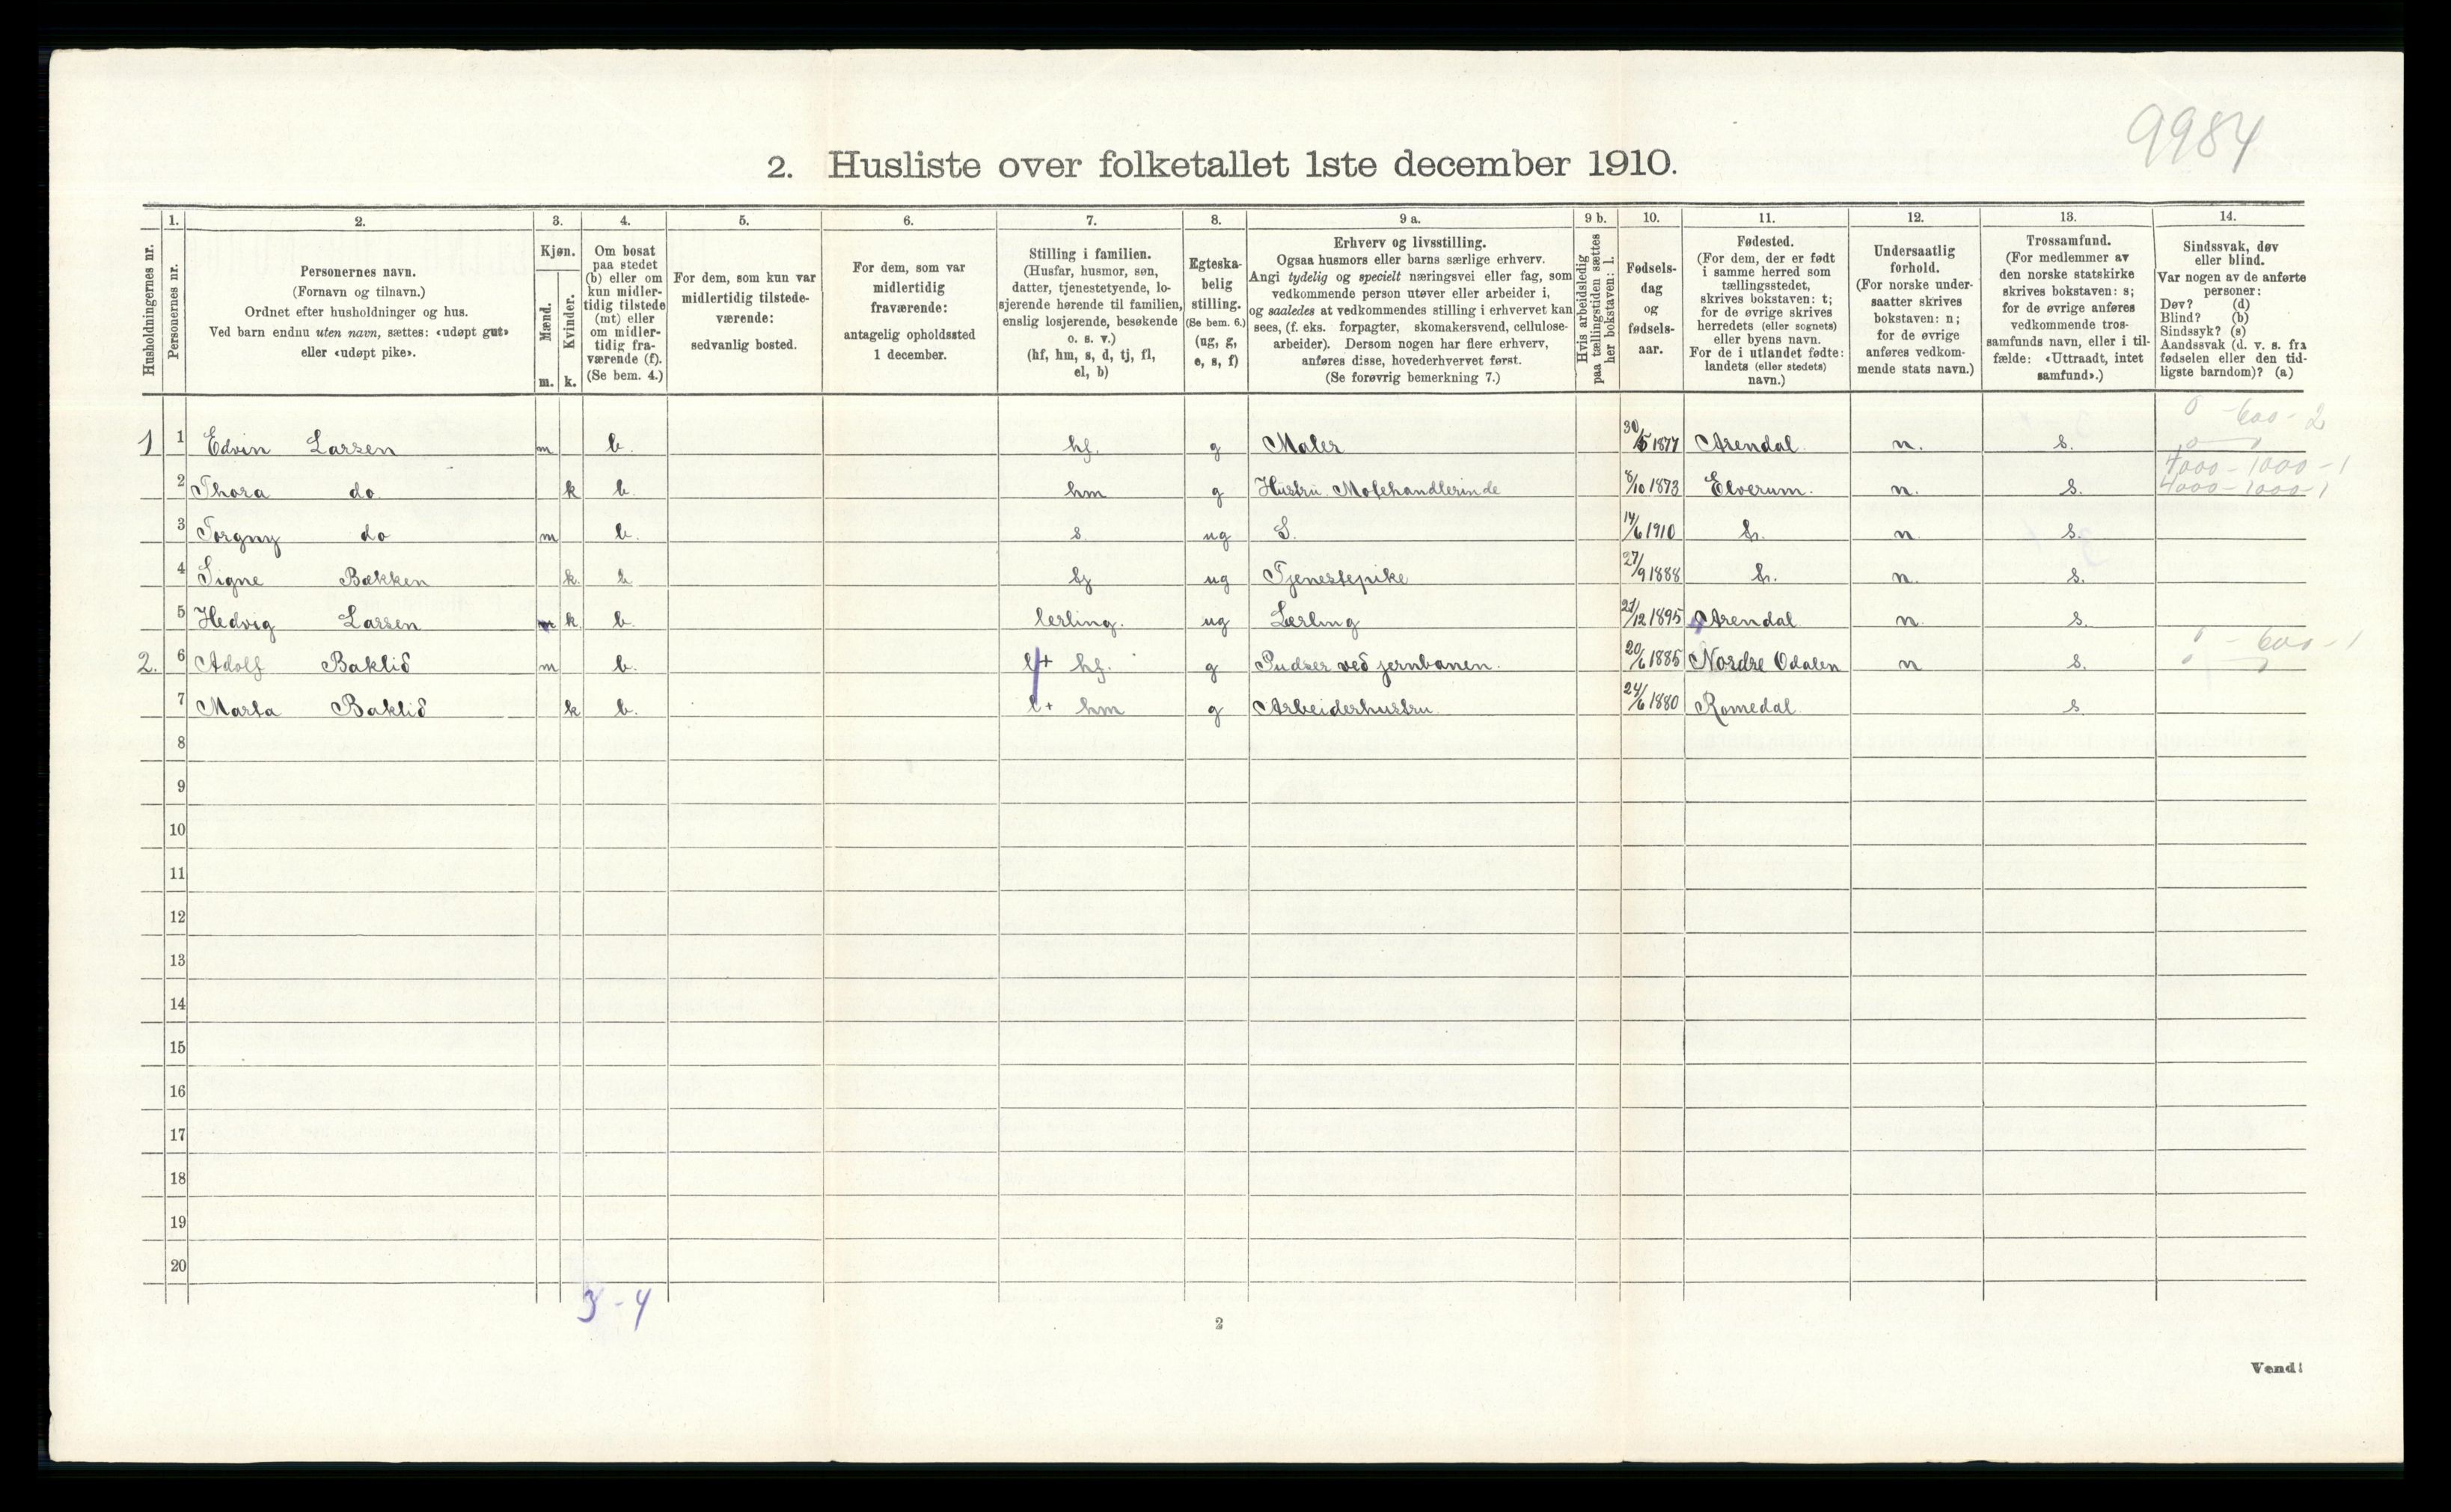 9984
2. Husliste over folketallet 1ste december 1910.
Husholdningernes nr.
1. Personernes nr.
2. Personernes navn. (Fornavn og tilnavn.) Ordnet efter husholdninger og hus. Ved barn endnu uten navn, sættes: «udøpt gut» eller «udøpt pike».
3. Kjøn. Mænd. m. Kvinder. k.
4. Om bosat paa stedet (b) eller om kun midlertidig tilstede (mt) eller om midlertidig fraværende (f). (Se bem. 4.)
5. For dem, som kun var midlertidig tilstedeværende: sedvanlig bosted.
6. For dem, som var midlertidig fraværende: antagelig opholdssted 1 december.
7. Stilling i familien. (Husfar, husmor, søn, datter, tjenestetyende, losjerende hørende til familien, enslig losjerende, besøkende o. s. v.) (hf, hm, s, d, tj, fl, el, b)
8. Egteskabelig stilling. (Se bem. 6.) (ug, g, e, s, f)
9 a. Erhverv og livsstilling. Ogsaa husmors eller barns særlige erhverv. Angi tydelig og specielt næringsvei eller fag, som vedkommende person utøver eller arbeider i, og saaledes at vedkommendes stilling i erhvervet kan sees, (f. eks. forpagter, skomakersvend, cellulosearbeider). Dersom nogen har flere erhverv, anføres disse, hovederhvervet først. (Se forøvrig bemerkning 7.)
9 b. Hvis arbeidsledig paa tællingstiden sættes her bokstaven: l.
10. Fødselsdag og fødselsaar.
11. Fødested. (For dem, der er født i samme herred som tællingsstedet, skrives bokstaven: t; for de øvrige skrives herredets (eller sognets) eller byens navn. For de i utlandet fødte: landets (eller stedets) navn.)
12. Undersaatlig forhold. (For norske undersaatter skrives bokstaven: n; for de øvrige anføres vedkommende stats navn.)
13. Trossamfund. (For medlemmer av den norske statskirke skrives bokstaven: s; for de øvrige anføres vedkommende trossamfunds navn, eller i tilfælde: «Uttraadt, intet samfund».)
14. Sindssvak, døv eller blind. Var nogen av de anførte personer: Døv? (d) Blind? (b) Sindssyk? (s) Aandssvak (d. v. s. fra fødselen eller den tidligste barndom)? (a)
0 - 600 - 2
1 1 Edvin Larsen m b. hf. g Maler 30/5 1877 Arendal n. s.
4000 - 1000 - 1
2 Thora do k b. hm g Hustru. Motehandlerinde 8/10 1873 Elverum. n. s. 4000 - 1000 - 1
3 Torgny do m b. s. ug S. 14/6 1910 t. n s.
4 Signe Bækken k. b tj ug Tjenestepike 27/9 1888 t. n. s.
5 Hedvig Larsen k. b. lerling. ug Lærling 21/12 1895 Arendal n. s.
2. 6 Adolf Baklid m b. l+ hf. g Pudser ved jernbanen. 20/6 1885 Nordre Odalen n s. 0 - 600 - 1
7 Marta Baklid k b. l+ hm g Arbeiderhustru 24/6 1880 Romedal s.
8
9
10
11
12
13
14
15
16
17
18
19
20
3 - 4
2
Vend!